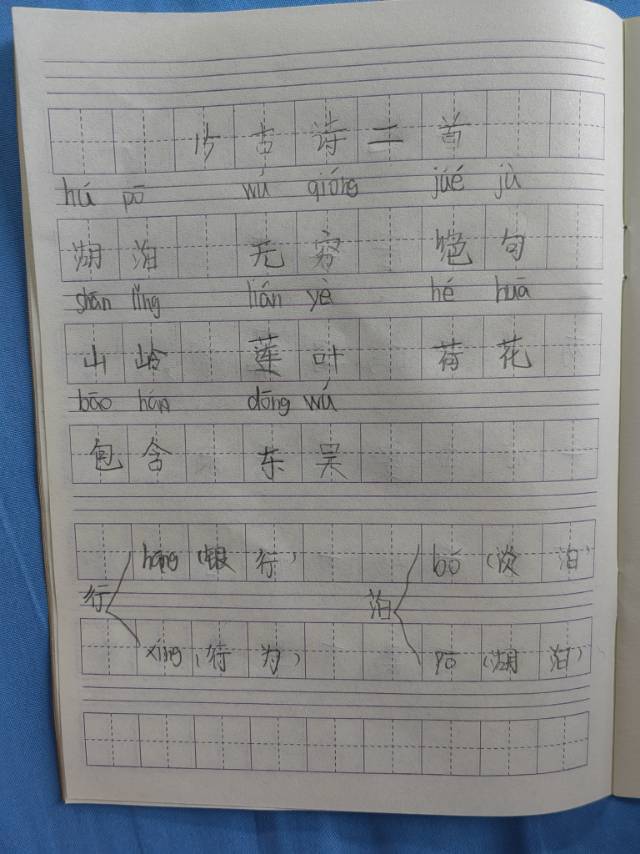 15 古诗二首
hú pō wú qióng júé jù
湖泊 无穷 绝句
shān lǐng lián yè hé huā
山岭 莲叶 荷花
bāo hán dōng wú
包含 东吴
háng (银行) bó (淡泊)
行 泊
xíng (行为) pō (湖泊)